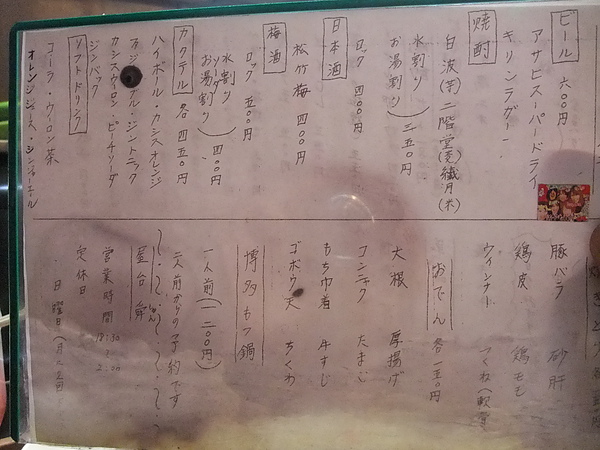 ビール 六〇〇円
アサヒスーパードライ
キリンラガー
焼酎
白波(芋)二階堂(麦)繊月(米)
水割り
お湯割り 三五〇円
ロック 四〇〇円
日本酒
松竹梅 四〇〇円
梅酒
ロック 五〇〇円
水割り
ソーダ割り
お湯割り 四〇〇円
カクテル 各四五〇円
ハイボール・カシスオレンジ
ファジーネーブル・ジントニック
カシスウーロン・ピーチソーダ
ジンバック
ソフトドリンク
コーラ・ウーロン茶
オレンジジュース・ジンジャエール
豚バラ 砂肝
鶏皮 鶏もも
ウィンナー つくね(軟骨
おでん 各一五〇円
大根 厚揚げ
コンニャク たまご
もち巾着 牛すじ
ゴボウ天 ちくわ
博多もつ鍋
一人前(一二〇〇円)
二人前からの予約です
屋台
営業時間 18:30〜2:00
定休日
日曜日(月に